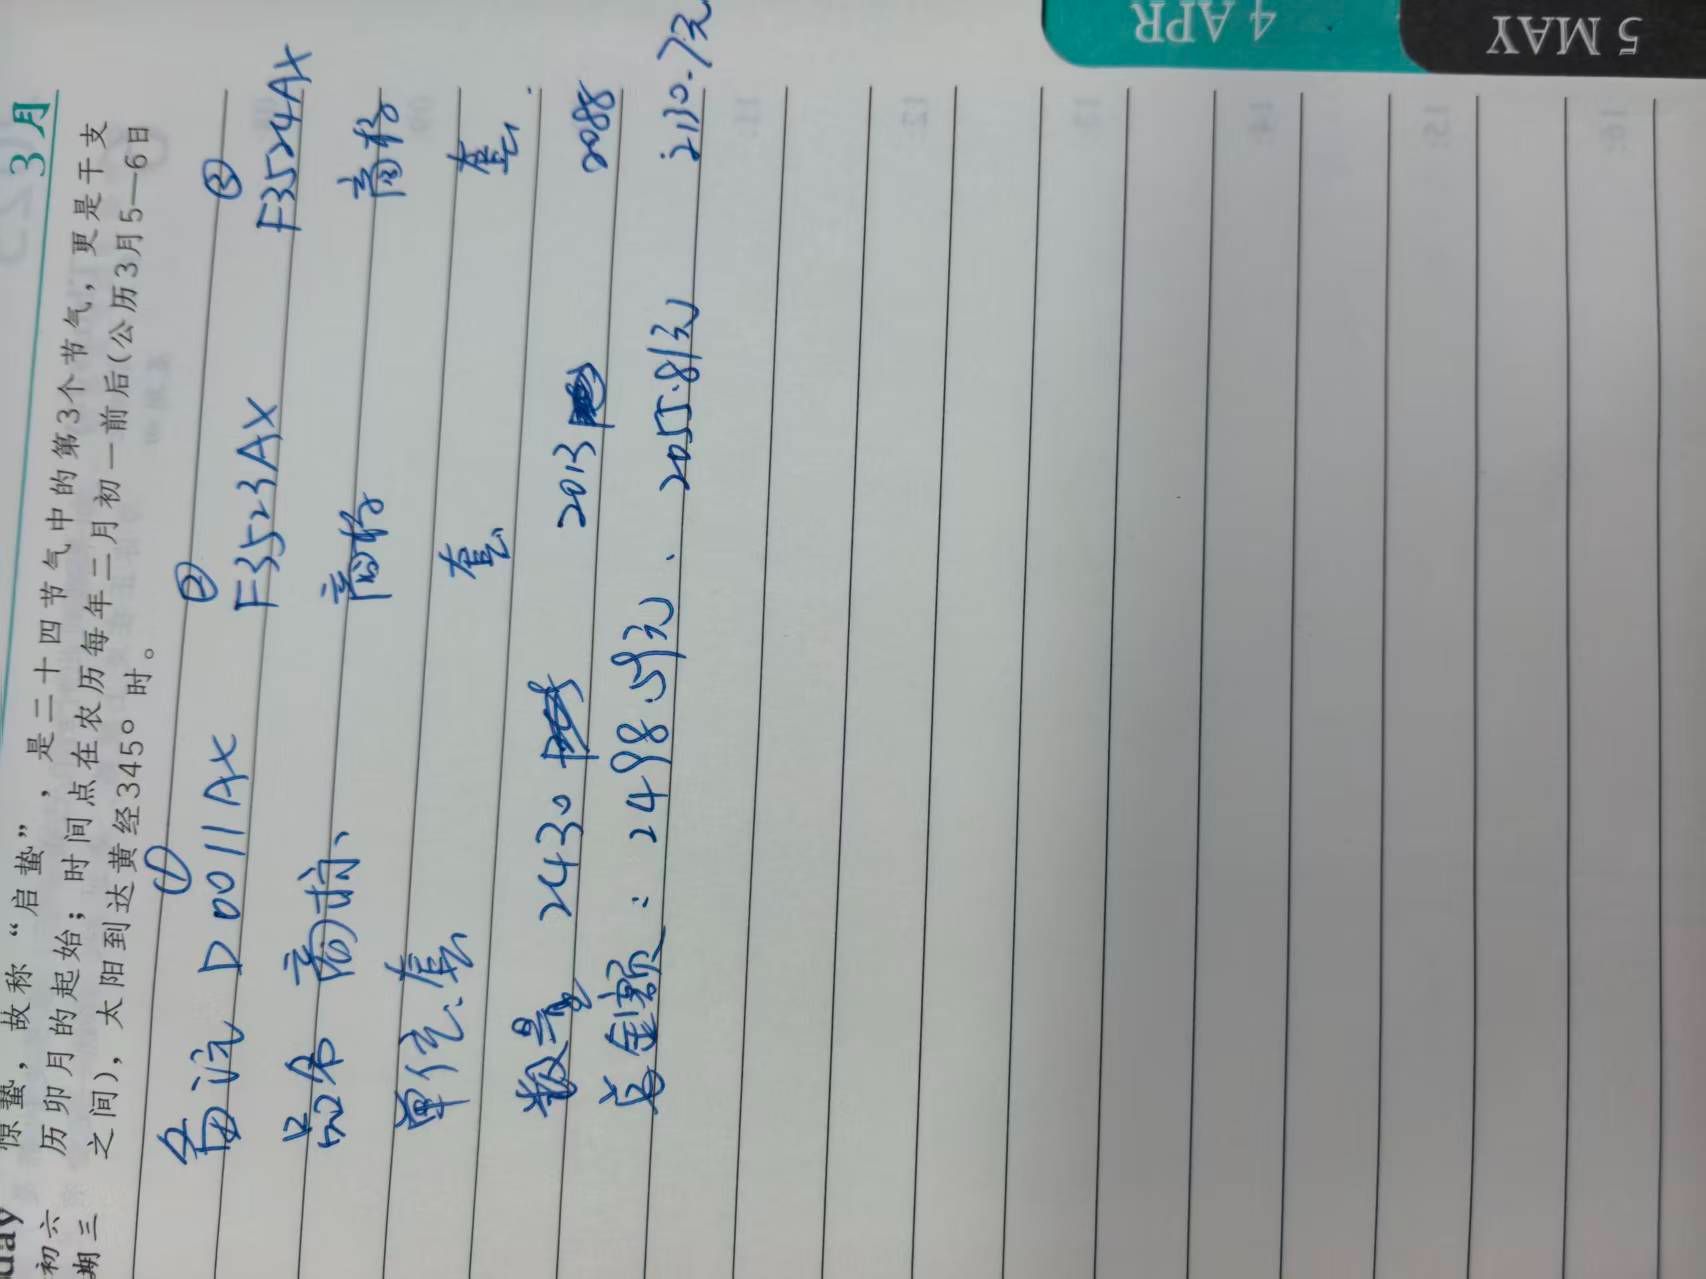 3月
惊蛰，故称“启蛰”，是二十四节气中的第3个节气，更是干支
历卯月的起始；时间点在农历每年二月初一前后(公历3月5—6日
之间)，太阳到达黄经345°时。
day
初六
期三
① ② ③
备注 D0011AX F3523AX F3524AX
品名 商标、 商标 商标
单位：套 套 套
数量 2430 2013 2088
总金额：2498.59元、2055.81元 2130.7元
4 APR
5 MAY